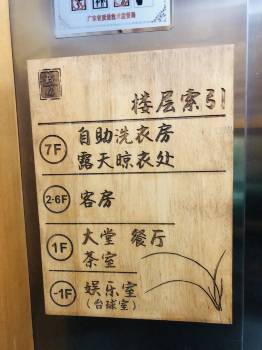 广东省质量技术监督局
楼层索引
7F 自助洗衣房
露天晾衣处
2-6F 客房
1F 大堂 餐厅
茶室
-1F 娱乐室
(台球室)